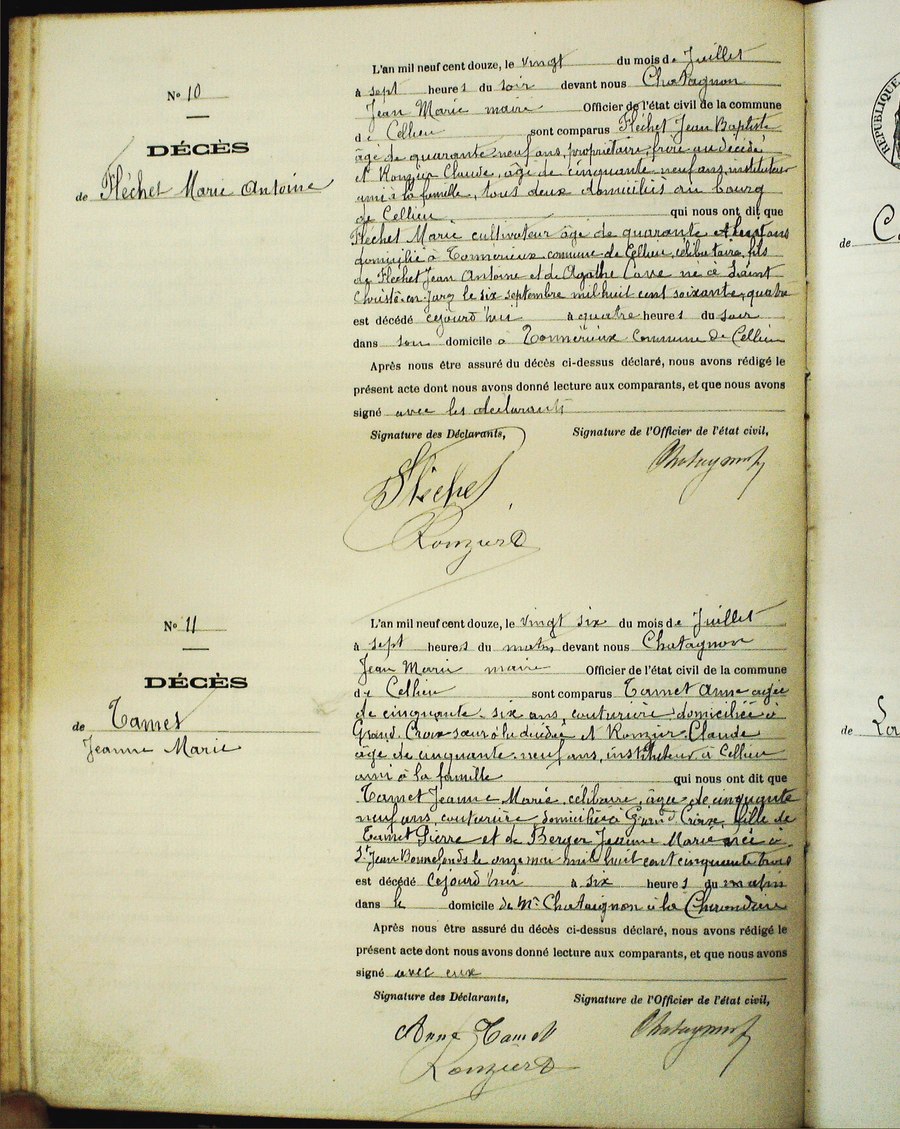 N° 10
DÉCÈS
de Fléchet Marie Antoine
L'an mil neuf cent douze, le vingt du mois de Juillet
à sept heures du soir devant nous Chatagnon
Jean Marie maire Officier de l'état civil de la commune
de Cellieu sont comparus Fléchet Jean Baptiste
âgé de quarante neuf ans, propriétaire, frère au décédé
et Ronzier Claude, âgé de cinquante neuf ans, instituteur
ami à la famille, tous deux domiciliés au bourg
de Cellieu qui nous ont dit que
Fléchet Marie cultivateur âgé de quarante ans
domicilié à commune de Cellieu, célibataire, fils
de Fléchet Jean Antoine et de Agathe né à Saint
Christô-en-Jarez le six septembre mil huit cent soixante quatre
est décédé cejourd'hui à quatre heures du soir
dans son domicile à Commune de Cellieu
Après nous être assuré du décès ci-dessus déclaré, nous avons rédigé le
présent acte dont nous avons donné lecture aux comparants, et que nous avons
signé avec les déclarants
Signature des Déclarants, Signature de l'Officier de l'état civil,
Fléchet Chatagnon
Ronzier
N° 11
DÉCÈS
de Tamet
Jeanne Marie
L'an mil neuf cent douze, le vingt six du mois de Juillet
à sept heures du matin devant nous Chatagnon
Jean Marie maire Officier de l'état civil de la commune
de Cellieu sont comparus Tamet Anne agée
de cinquante six ans, couturière domiciliée à
Grand Croix sœur à la décédée et Ronzier Claude
âgé de cinquante neuf ans, instituteur à Cellieu
ami à la famille qui nous ont dit que
Tamet Jeanne Marie, célibaire, âgée de cinquante
neuf ans, couturière domiciliée à Grand Croix, fille de
Tamet Pierre et de Berger Jeanne Marie née à
St Jean Bonnefonds le onze mai mil huit cent cinquante trois
est décédé cejourd'hui à six heures du matin
dans le domicile de Mr Chataignon à la
Après nous être assuré du décès ci-dessus déclaré, nous avons rédigé le
présent acte dont nous avons donné lecture aux comparants, et que nous avons
signé avec eux
Signature des Déclarants, Signature de l'Officier de l'état civil,
Anne Tamet Chatagnon
Ronzier
RÉPUBLIQUE
de
de